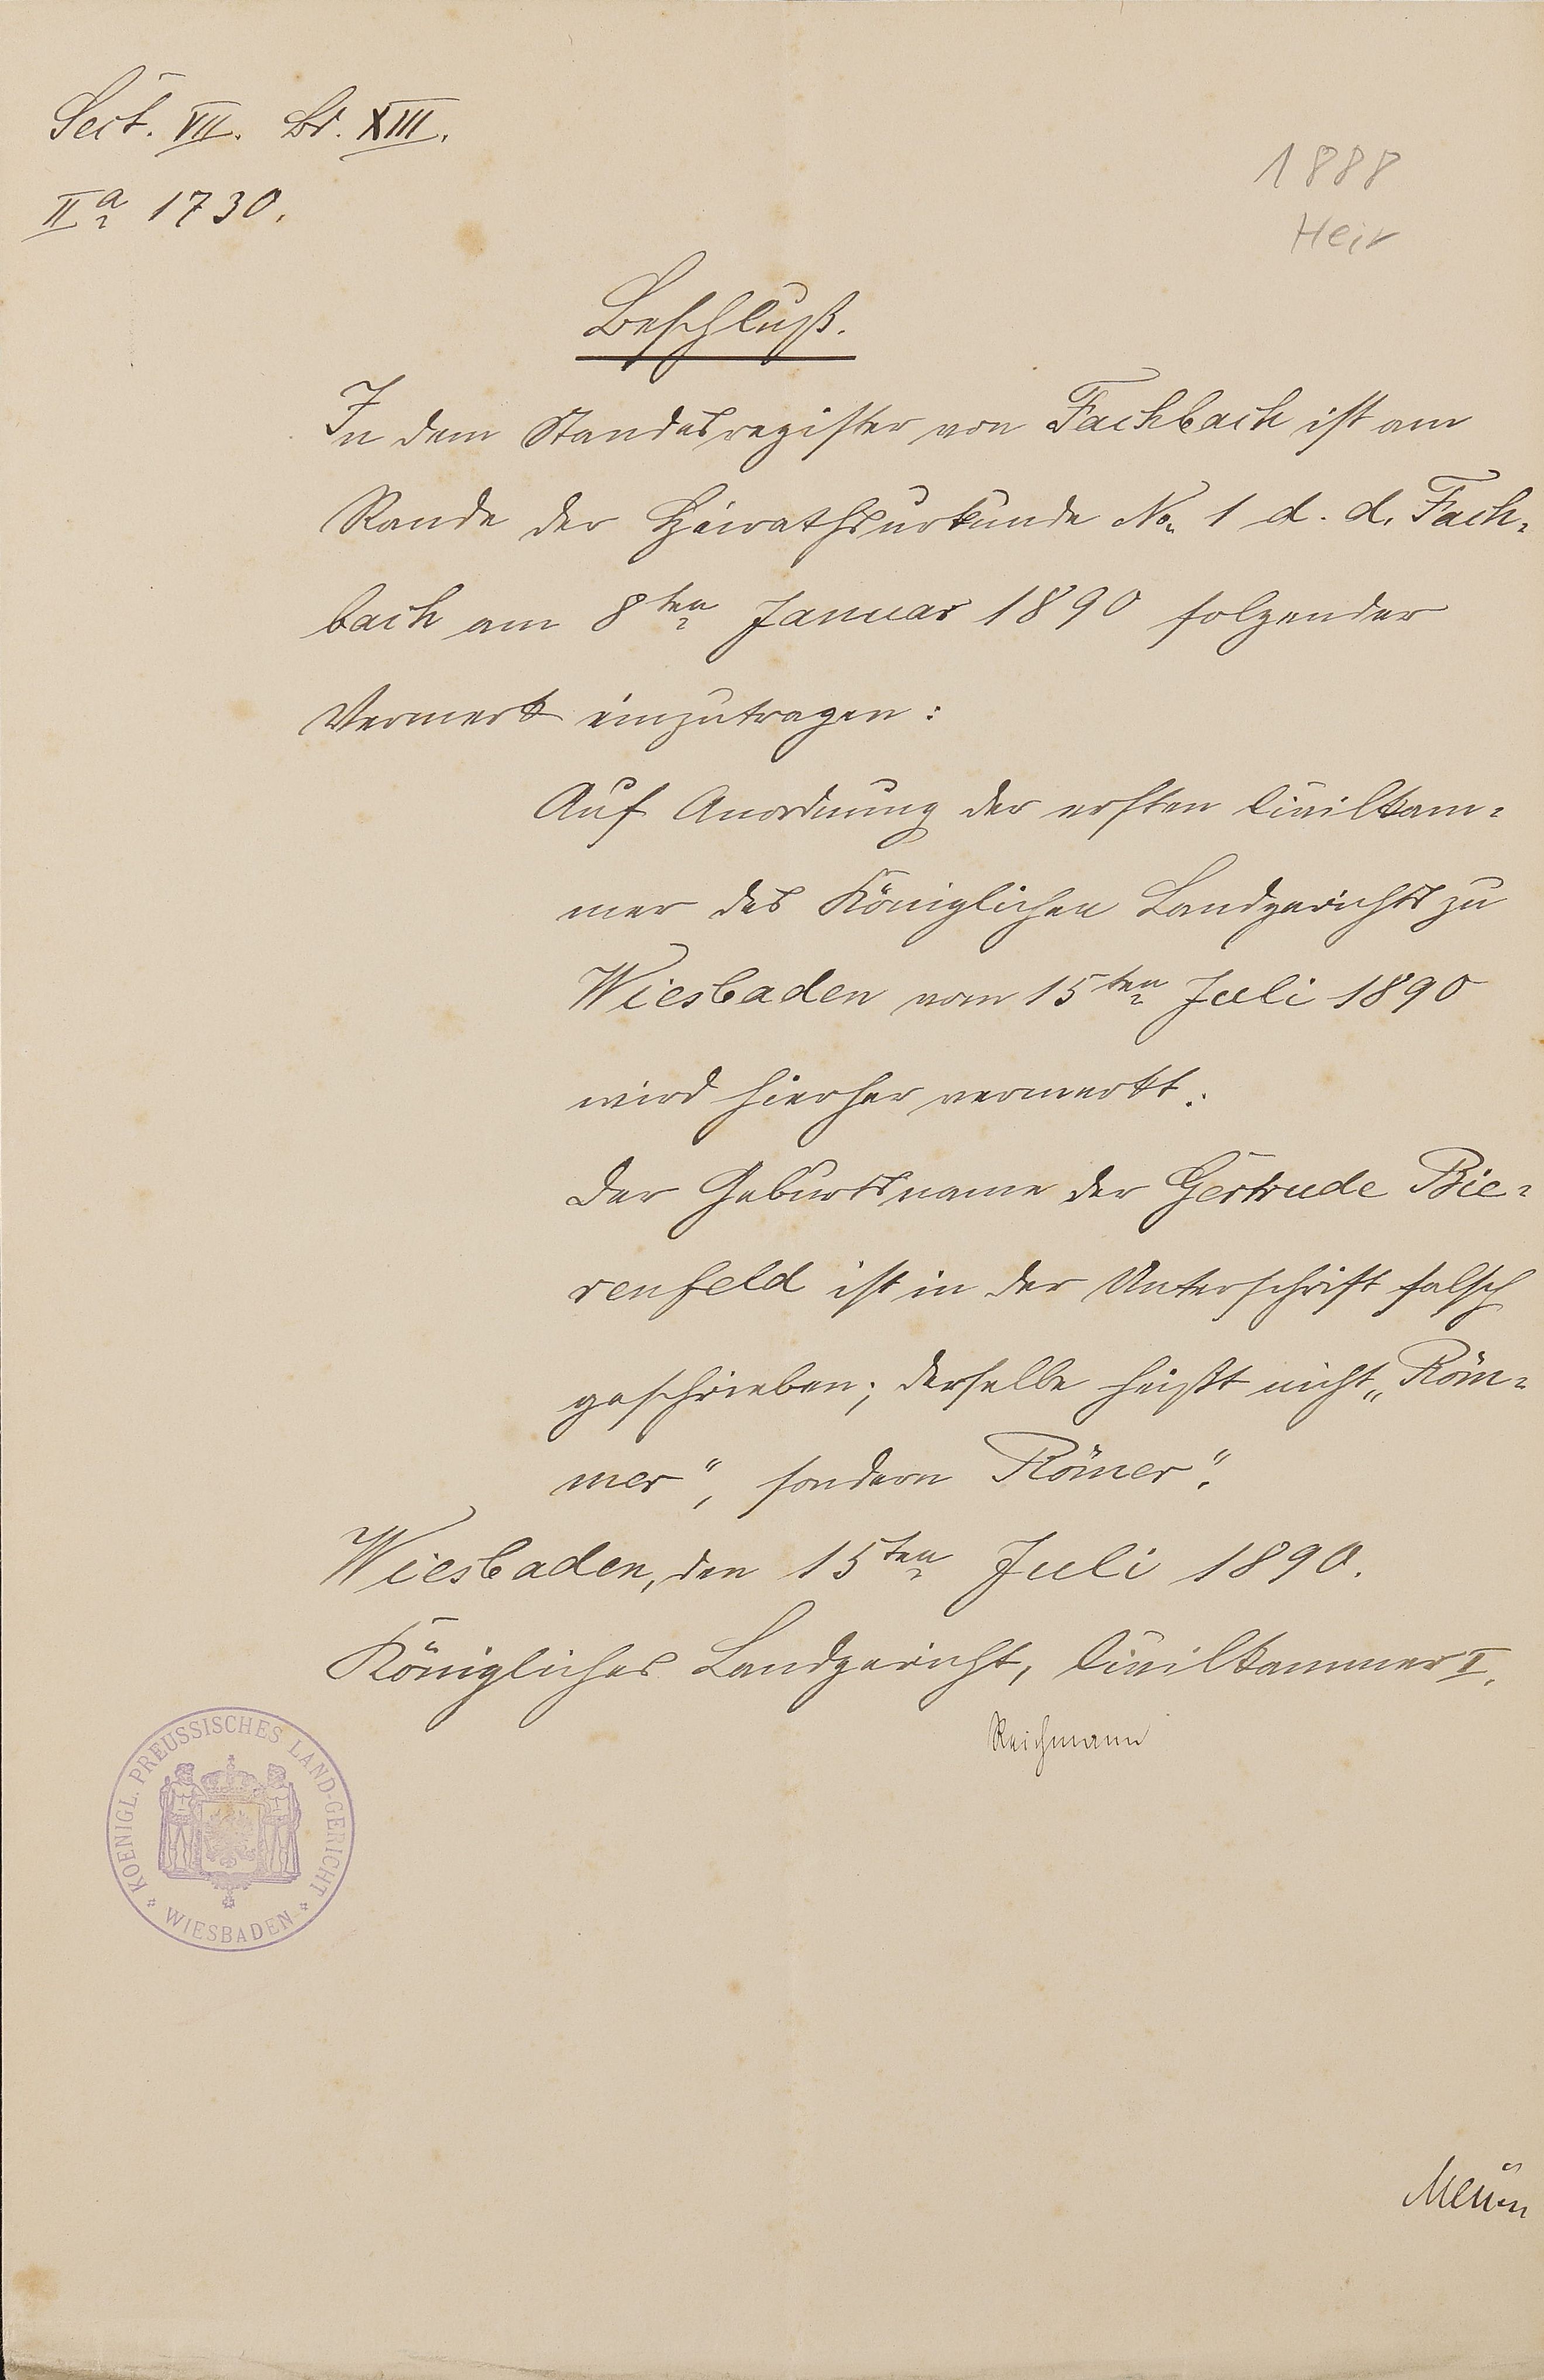 Sect. VII. Br. XIII.
IIa 1730.
1888
Heir
Beschluß.
In dem Standesregister von Fachbach ist am
Rande der Heirathsurkunde No. 1 d. d. Fach-
bach am 8ten Januar 1890 folgender
Vermerk einzutragen:
Auf Anordnung der ersten Civilkam-
mer des Königlichen Landgerichts zu
Wiesbaden vom 15ten Juli 1890
wird hierher vermerkt:
Der Geburtsname der Gertrude Bie-
renfeld ist in der Unterschrift falsch
geschrieben; derselbe heißt nicht „Röm-
mer“, sondern Römer“.
Wiesbaden, den 15ten Juli 1890.
Königliches Landgericht, Civilkammer I.
Reichmann
KOENIGL. PREUSSISCHES LAND-GERICHT
WIESBADEN